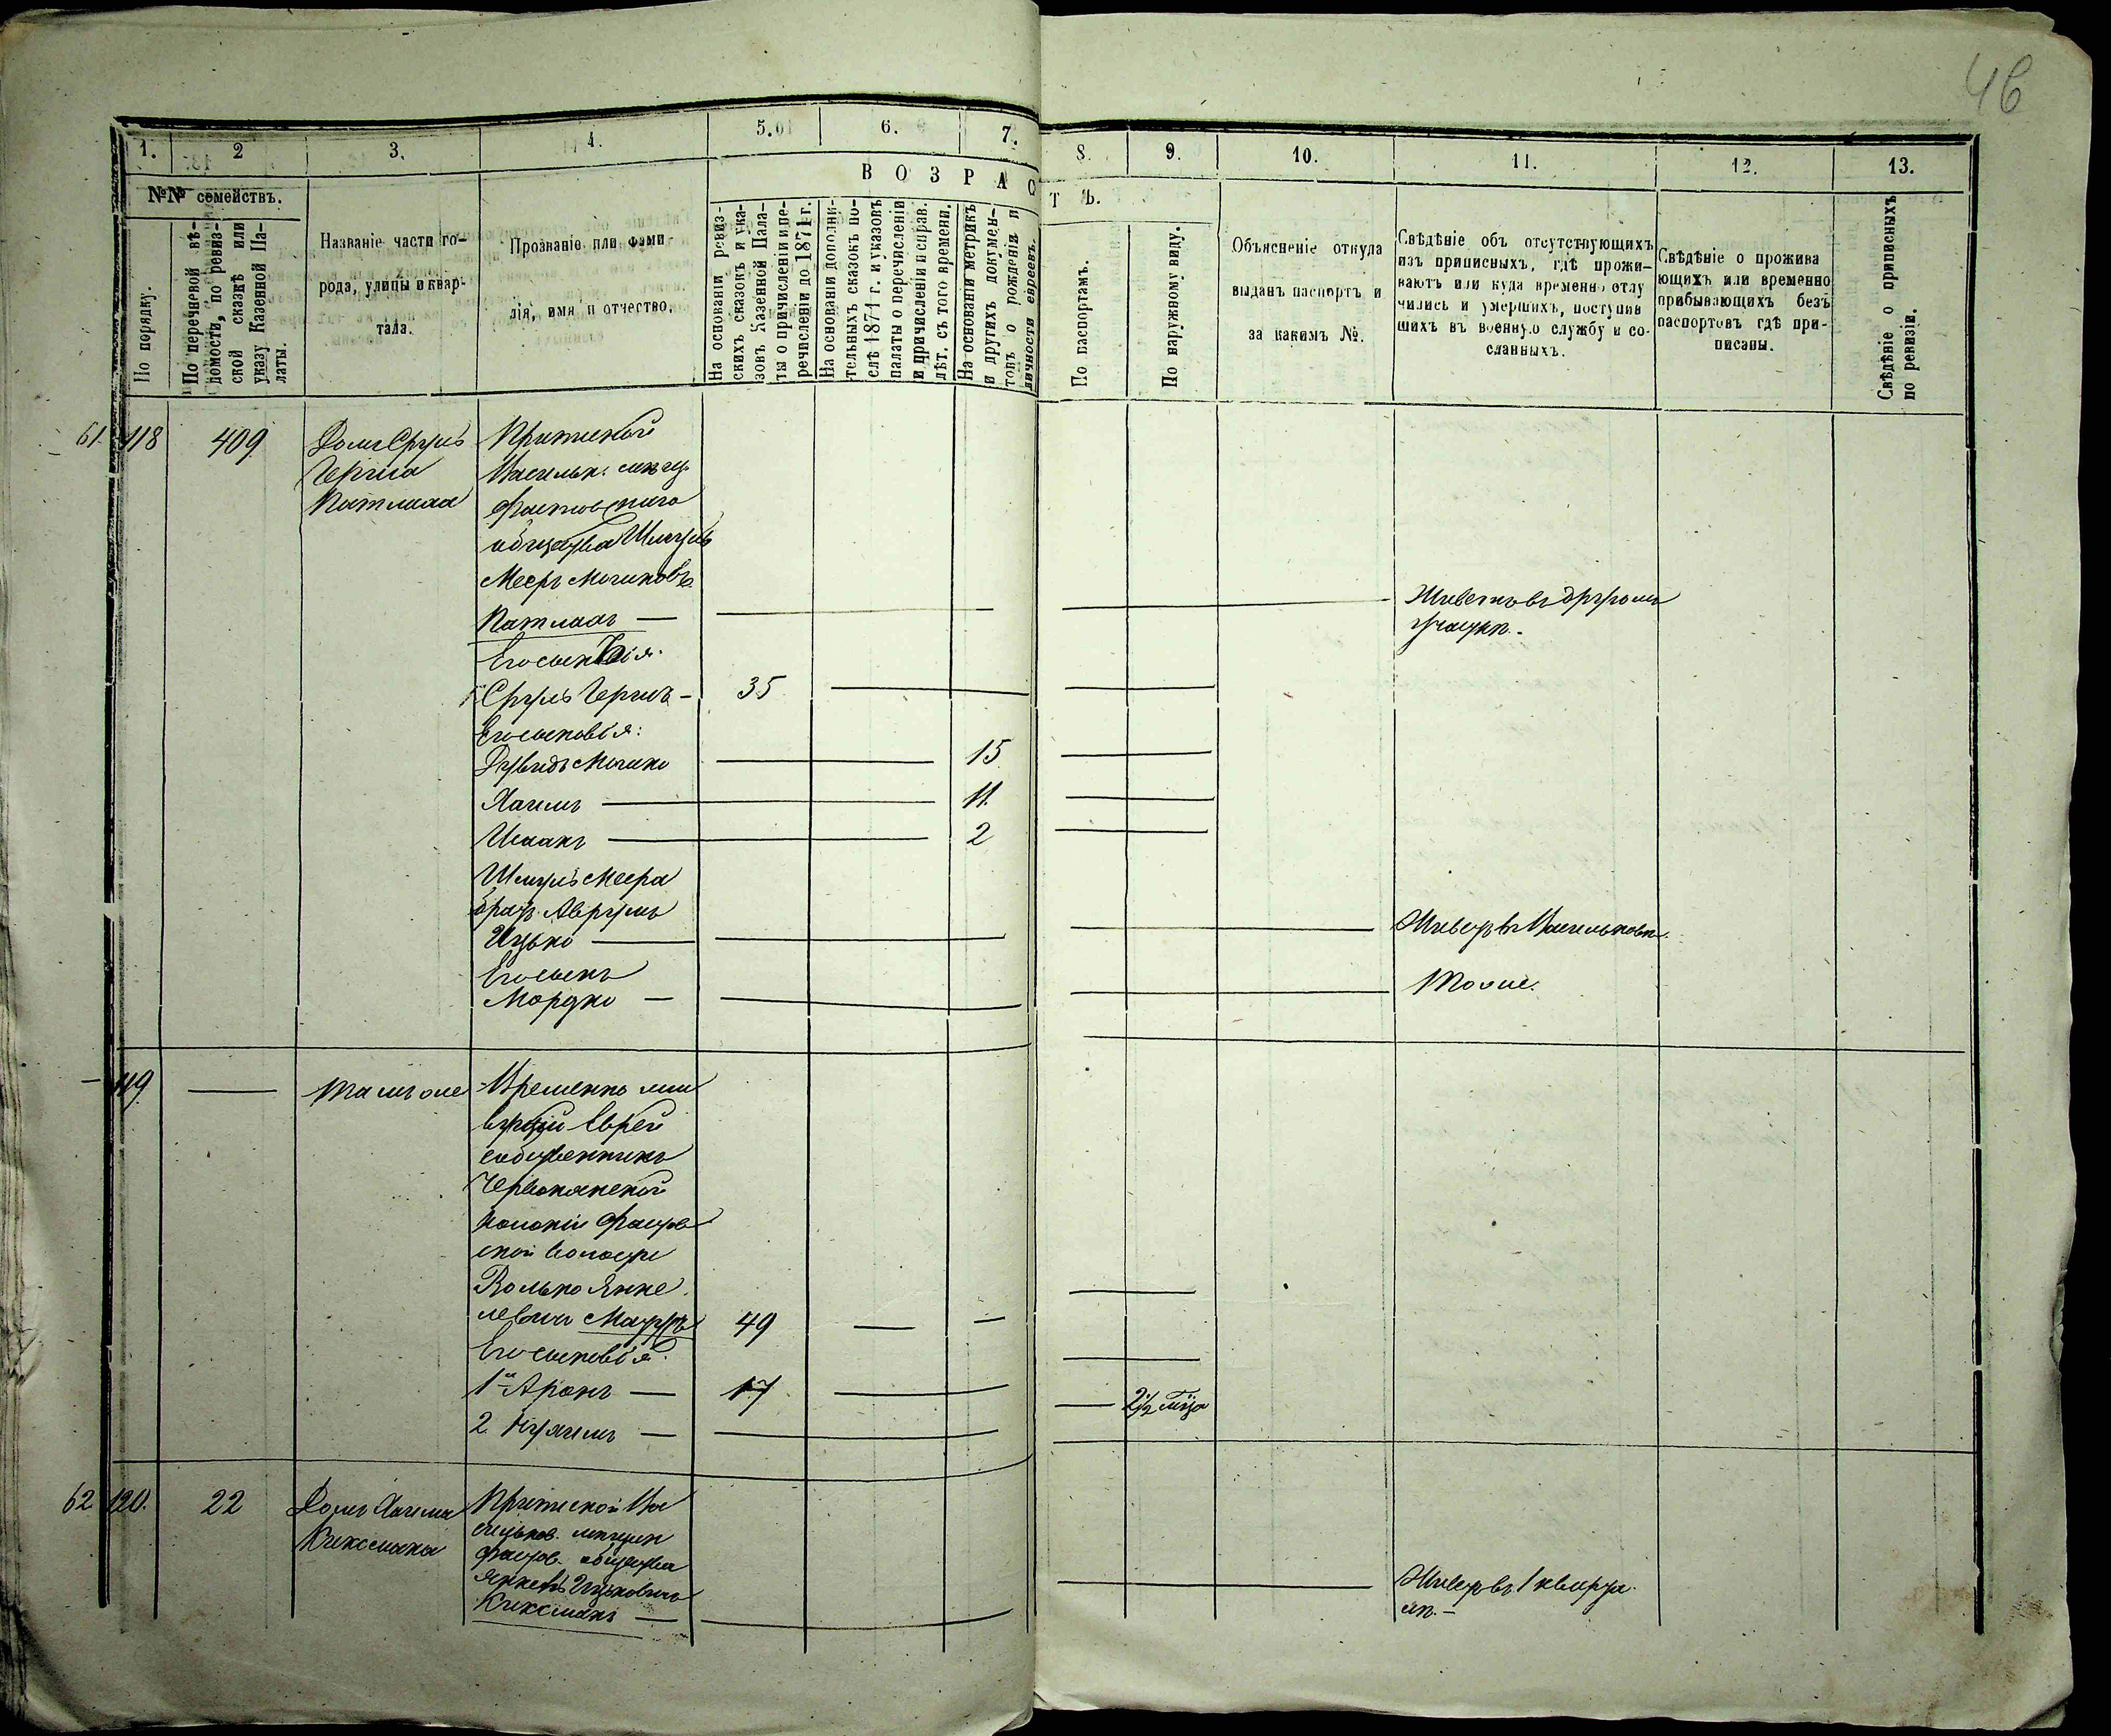 46
1.
2
3.
4.
5.
6.
7.
8.
9.
10.
11.
12.
13.
№№ семействъ.
По порядку.
По перечневой вѣ-
домости, по ревиз-
ской сказкѣ или
указу Казенной Па-
латы.
Названіе части го-
рода, улицы и квар-
тала.
Прозваніе или фами-
лія, имя и отчество.
ВОЗРАС
На основаніи ревиз-
скихъ сказокъ и ука-
зовъ Казенной Пала-
ты о причисленіи и пе-
речисленіи до 1871 г.
На основаніи дополни-
тельныхъ сказокъ по-
слѣ 1871 г. и указовъ
палаты о перечисленіи
и причисленіи и справ.
лѣт. съ того времени.
На основаніи метрикъ
и другихъ докумен-
товъ о рожденіи и
личности евреевъ.
ТЪ.
По паспортамъ.
По наружному виду.
Объясненіе откуда
выданъ паспортъ и
за какимъ №.
Свѣдѣніе объ отсутствующихъ
изъ приписныхъ, гдѣ прожи-
ваютъ или куда временно отлу
чились и умершихъ, поступив
шихъ въ военную службу и со-
сланныхъ.
Свѣдѣніе о прожива
ющихъ или временно
прибывающихъ безъ
паспортовъ гдѣ при-
писаны.
Свѣдѣніе о приписныхъ
по ревизіи.
61. 118
409
Домъ Сруль
Герша
Патлаха
Приписной
Васильк. мѣщ.
Фастовскаго
общества Шмуль
Мееръ Мошковъ
Патлахъ —
Живетъ въ другомъ
участк.
Его сыновья.
Сруль Гершъ — 35
Его сыновья:
Дувидъ Мошко 15
Хаимъ 11.
Исаакъ 2
Шмуль Меера
братъ Аврумъ
Ицько
Живетъ въ Васильковѣ.
Его сынъ
Мордко —
Тоже.
— 119
Тамъ же
Временно жи
вущій Еврей
собственникъ
Червонянской
колоніи Фастов
ской волости
Волько Янке
левичъ 49
Его сыновья.
1й Аронъ — 17
2. Нухимъ —
2½
62 120.
22
Домъ Хаима
Киксмана
Приписной Ва
сильков. мѣщан
Фастов. общества
Янкель Ицьковичъ
Киксманъ —
Живетъ въ 1 кварта
лѣ. —